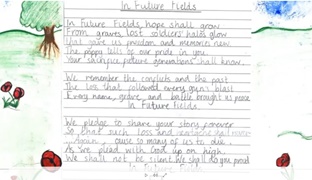 In Future Fields
In Future Fields, hope shall grow
From graves, lost soldiers' halos glow
That gave us freedom and memories new
The poppy tells of our pride in you
Your sacrifice, future generations shall know.
We remember the conflicts and the past
The loss that followed every gun's blast
Every name, grave, and battle brought us peace
In Future Fields.
We pledge to share your story forever
So that such loss and heartache shall never
Again, cause so many of us to die.
As we plead with God up on high
We shall not be silent, we shall do you proud
In Future Fields